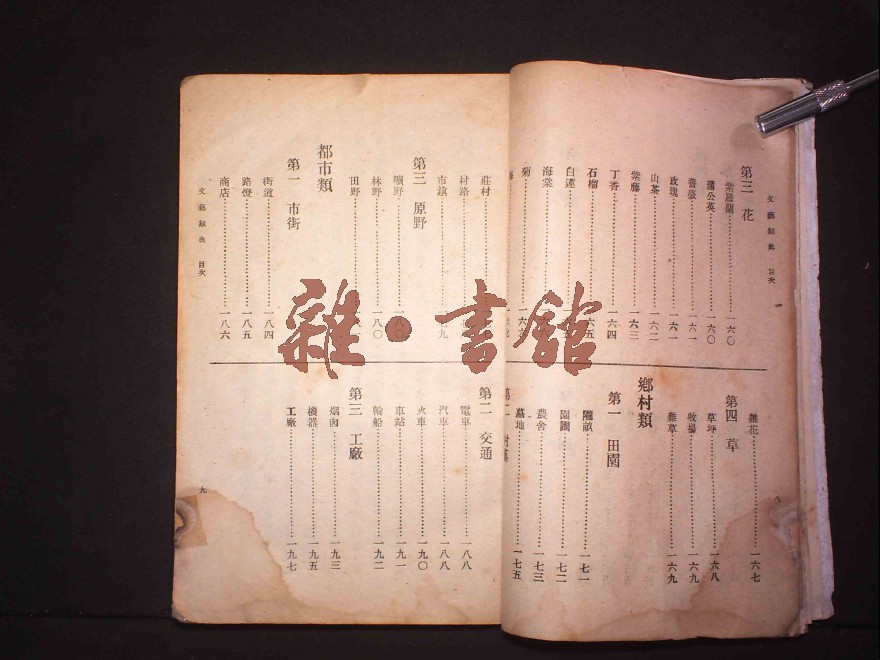 文藝類典 目次
第三 花
紫羅蘭……一六〇
蒲公英……一六〇
薔薇……一六一
玫瑰……一六一
山茶……一六二
紫藤……一六三
丁香……一六四
石榴
白蓮
海棠
菊
雜花……一六七
第四 草
草坪……一六八
牧場……一六九
雜草……一六九
鄉村類
第一 田園
隴畝……一七一
園圃……一七二
農舍……一七三
墓地……一七五
八
莊村
村路
市鎮
第三 原野
曠野……一八〇
林野……一八〇
田野
都市類
第一 市街
街道……一八四
路燈……一八五
商店……一八六
第二 交通
電車……一八八
汽車……一八八
火車……一九〇
車站……一九一
輪船……一九二
第三 工廠
烟囱……一九三
機器……一九五
工廠……一九七
文藝類典 目次
九
雜·書館